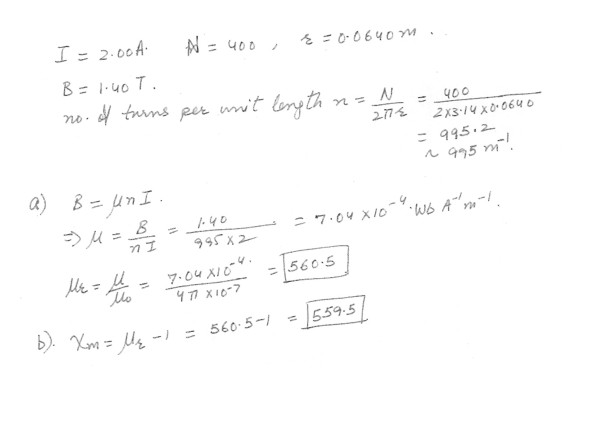 I = 2.00A. N = 400 , r = 0.0640 m .
B = 1.40 T .
no. of turns per unit length n = N / 2πr = 400 / 2×3.14×0.0640
= 995.2
~ 995 m⁻¹.
a) B = μnI .
⇒ μ = B / nI = 1.40 / 995×2 = 7.04 ×10⁻⁴. Wb A⁻¹ m⁻¹.
μr = μ / μ₀ = 7.04 ×10⁻⁴. / 4π ×10⁻⁷ = 560.5
b). χm = μr −1 = 560.5−1 = 559.5